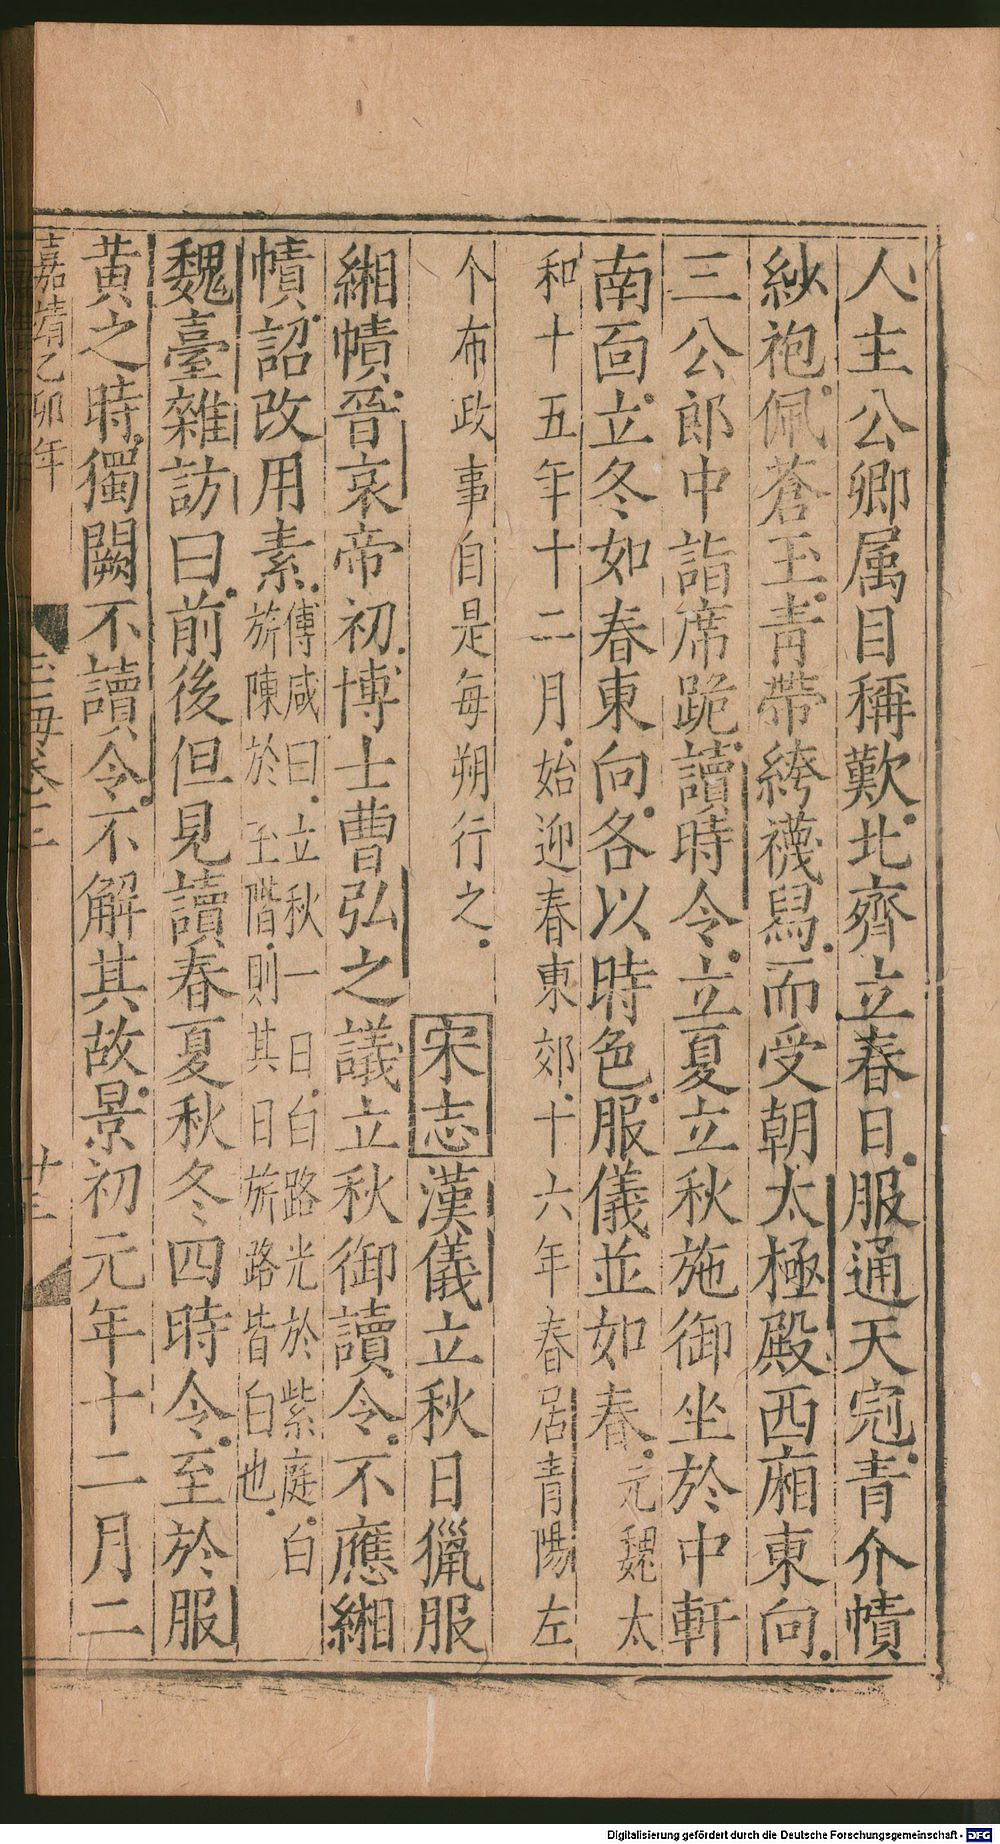 人主公卿属目稱歎北齊立春日服通天冠青介幘
紗袍佩蒼玉青帶絝襪舄而受朝太極殿西廂東向
三公郎中詣席跪讀時令立夏立秋施御坐於中軒
南面立冬如春東向各以時色服儀並如春元魏太
和十五年十二月始迎春東郊十六年春居青陽左
个布政事自是每朔行之宋志漢儀立秋日獵服
緗幘晉哀帝初博士曹弘之議立秋御讀令不應緗
幘詔改用素
傅咸曰立秋一日白路光於紫庭白
旂陳於玉階則其日旂路皆白也
魏臺雜訪曰前後但見讀春夏秋冬四時令至於服
黄之時獨闕不讀令不解其故景初元年十二月二
嘉靖乙卯年
玉海卷十二
廿三
Digitalisierung gefördert durch die Deutsche Forschungsgemeinschaft - DFG